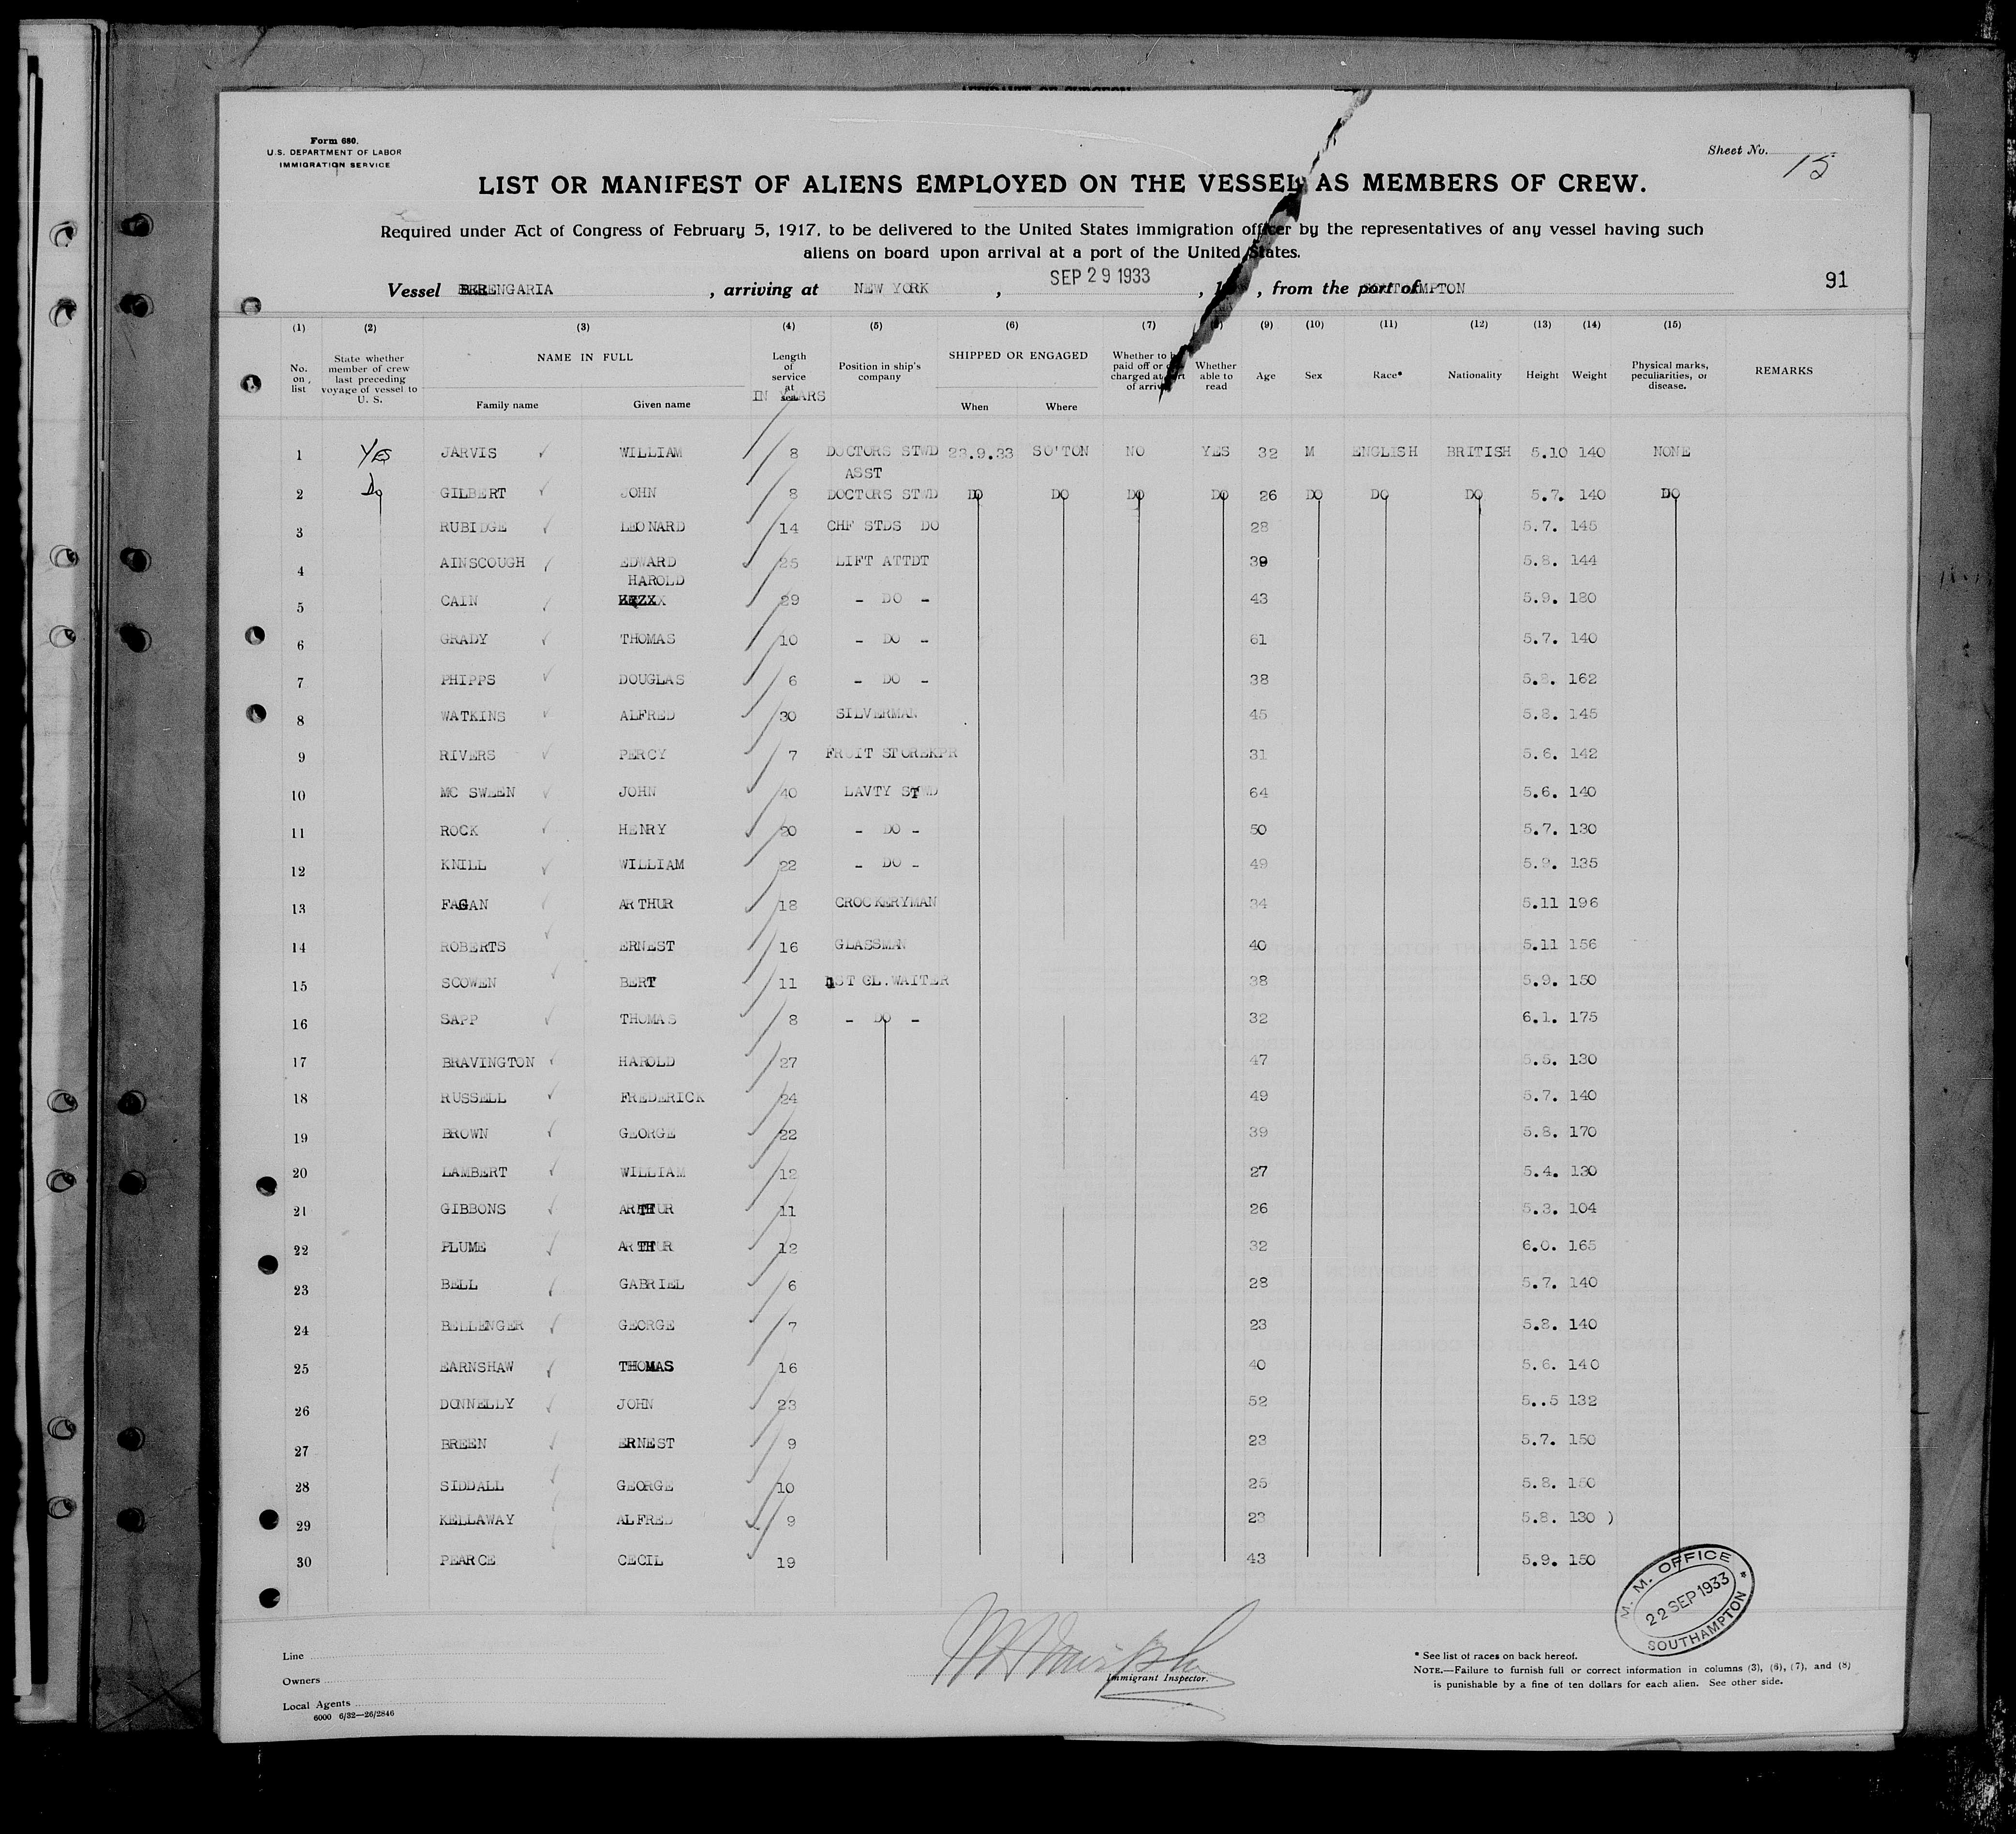 Form 680.
U.S. DEPARTMENT OF LABOR
IMMIGRATION SERVICE
Sheet No. 15
LIST OR MANIFEST OF ALIENS EMPLOYED ON THE VESSEL AS MEMBERS OF CREW.
Required under Act of Congress of February 5, 1917, to be delivered to the United States immigration officer by the representatives of any vessel having such
aliens on board upon arrival at a port of the United States.
Vessel BERENGARIA , arriving at NEW YORK , SEP 29 1933 , 1 , from the port of SOUTHAMPTON 91
(1) (2) (3) (4) (5) (6) (7) (8) (9) (10) (11) (12) (13) (14) (15)
No. on list State whether member of crew last preceding voyage of vessel to U. S. NAME IN FULL Family name Given name Length of service at sea IN YEARS Position in ship's company SHIPPED OR ENGAGED When Where Whether to be paid off or charged at port of arrival Whether able to read Age Sex Race* Nationality Height Weight Physical marks, peculiarities, or disease. REMARKS
1 YES JARVIS WILLIAM 8 DOCTORS STWD 23.9.33 SO'TON NO YES 32 M ENGLISH BRITISH 5.10 140 NONE
ASST
2 Do GILBERT JOHN 8 DOCTORS STWD DO DO DO DO 26 DO DO DO 5.7. 140 DO
3 RUBIDGE LEONARD 14 CHF STDS DO 28 5.7. 145
4 AINSCOUGH EDWARD 25 LIFT ATTDT 39 5.8. 144
HAROLD
5 CAIN 29 - DO - 43 5.9. 180
6 GRADY THOMAS 10 - DO - 61 5.7. 140
7 PHIPPS DOUGLAS 6 - DO - 38 5.8. 162
8 WATKINS ALFRED 30 SILVERMAN 45 5.8. 145
9 RIVERS PERCY 7 FRUIT STOREKPR 31 5.6. 142
10 MC SWEEN JOHN 40 LAVTY STWD 64 5.6. 140
11 ROCK HENRY 20 - DO - 50 5.7. 130
12 KNILL WILLIAM 22 - DO - 49 5.9. 135
13 FAGAN ARTHUR 18 CROCKERYMAN 34 5.11 196
14 ROBERTS ERNEST 16 GLASSMAN 40 5.11 156
15 SCOWEN BERT 11 1ST CL.WAITER 38 5.9. 150
16 SAPP THOMAS 8 - DO - 32 6.1. 175
17 BRAVINGTON HAROLD 27 47 5.5. 130
18 RUSSELL FREDERICK 24 49 5.7. 140
19 BROWN GEORGE 22 39 5.8. 170
20 LAMBERT WILLIAM 12 27 5.4. 130
21 GIBBONS ARTHUR 11 26 5.3. 104
22 PLUME ARTHUR 12 32 6.0. 165
23 BELL GABRIEL 6 28 5.7. 140
24 BELLENGER GEORGE 7 23 5.8. 140
25 EARNSHAW THOMAS 16 40 5.6. 140
26 DONNELLY JOHN 23 52 5..5 132
27 BREEN ERNEST 9 23 5.7. 150
28 SIDDALL GEORGE 10 25 5.8. 150
29 KELLAWAY ALFRED 9 23 5.8. 130 )
30 PEARCE CECIL 19 43 5.9. 150
M. M. OFFICE
22 SEP 1933
SOUTHAMPTON *
Line
Owners
Local Agents
6000 6/32—26/2846
Immigrant Inspector.
* See list of races on back hereof.
NOTE.—Failure to furnish full or correct information in columns (3), (6), (7), and (8)
is punishable by a fine of ten dollars for each alien. See other side.